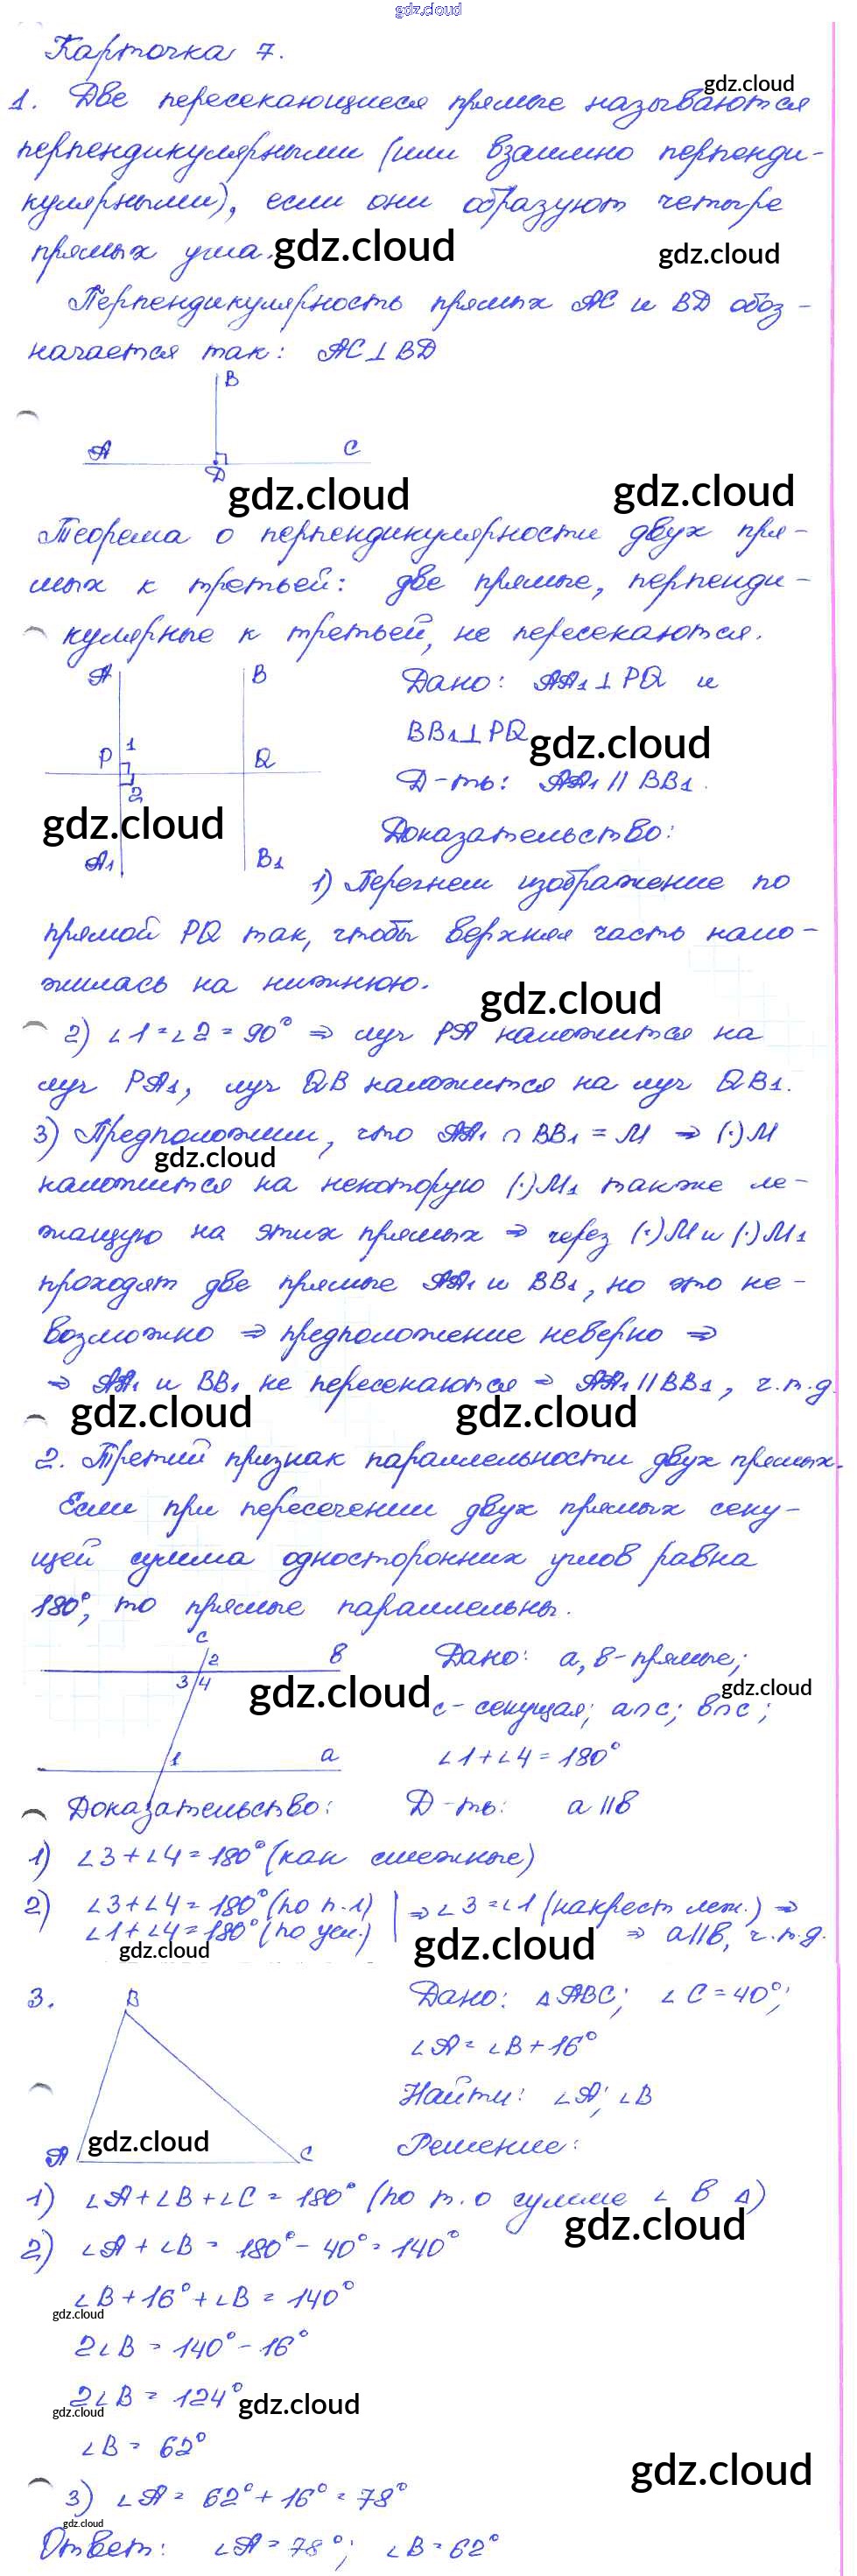 gdz.cloud
Карточка 7.
gdz.cloud
1. Две пересекающиеся прямые называются
перпендикулярными (или взаимно перпенди-
кулярными), если они образуют четыре
прямых угла. gdz.cloud gdz.cloud
Перпендикулярность прямых AC и BD обоз-
начается так: AC⊥BD
B
A C
D
gdz.cloud gdz.cloud
Теорема о перпендикулярности двух пря-
мых к третьей: две прямые, перпенди-
кулярные к третьей, не пересекаются.
A B Дано: AA₁⊥PQ и
BB₁⊥PQ gdz.cloud
P 1 Q Д-ть: AA₁ || BB₁.
2
gdz.cloud Доказательство:
A₁ B₁
1) Перегнем изображение по
прямой PQ так, чтобы верхняя часть нало-
жилась на нижнюю. gdz.cloud
2) ∠1=∠2=90° ⇒ луч PA наложится на
луч PA₁, луч QB наложится на луч QB₁.
3) Предположим, что AA₁ ∩ BB₁ = M ⇒ (·)M
gdz.cloud
наложится на некоторую (·)M₁ также ле-
жащую на этих прямых ⇒ через (·)M и (·)M₁
проходят две прямые AA₁ и BB₁, но это не-
возможно ⇒ предположение неверно ⇒
⇒ AA₁ и BB₁ не пересекаются ⇒ AA₁||BB₁, ч.т.д.
gdz.cloud gdz.cloud
2. Третий признак параллельности двух прямых.
Если при пересечении двух прямых секу-
щей сумма односторонних углов равна
180°, то прямые параллельны.
c
2 в Дано: a, в-прямые;
3 4 gdz.cloud gdz.cloud
c - секущая; a∩c; в∩c;
1 a ∠1+∠4=180°
Доказательство: Д-ть: a||в
1) ∠3+∠4=180° (как смежные)
2) ∠3+∠4=180° (по п.1) | ⇒ ∠3=∠1 (накрест леж.) ⇒
∠1+∠4=180° (по усл.) | ⇒ a||в, ч.т.д.
gdz.cloud gdz.cloud
3. B Дано: △ABC; ∠C=40°;
∠A=∠B+16°
Найти: ∠A; ∠B
A gdz.cloud C Решение:
1) ∠A+∠B+∠C=180° (по т. о сумме ∠ в △)
gdz.cloud
2) ∠A+∠B=180°-40°=140°
∠B+16°+∠B=140°
gdz.cloud
2∠B=140°-16°
2∠B=124° gdz.cloud
gdz.cloud
∠B=62°
gdz.cloud
3) ∠A=62°+16°=78°
gdz.cloud
Ответ: ∠A=78°; ∠B=62°